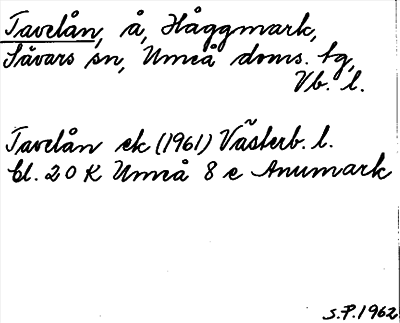 Tavelån, å, Håggmark,
Sävars sn, Umeå doms. tg,
Vb. l.
Tavelån ek (1961) Västerb. l.
bl. 20 K Umeå 8 e Anumark
S.P. 1962